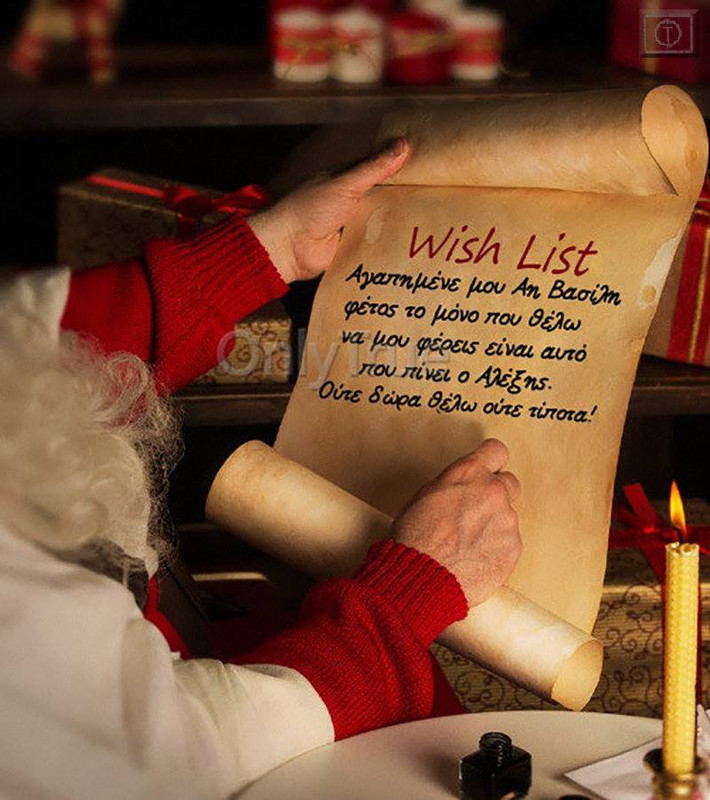 Wish List
Αγαπημένε μου Αη Βασίλη
φέτος το μόνο που θέλω
να μου φέρεις είναι αυτό
που πίνει ο Αλέξης.
Ούτε δώρα θέλω ούτε τίποτα!